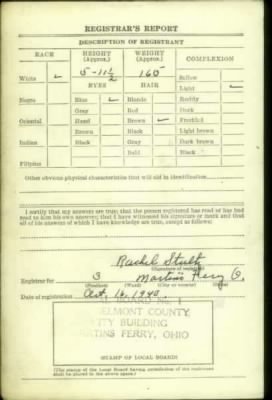 REGISTRAR'S REPORT
DESCRIPTION OF REGISTRANT
RACE HEIGHT (Approx.) WEIGHT (Approx.) COMPLEXION
5-11½ 165 Sallow
White ✓ EYES HAIR Light ✓
Negro Blue ✓ Blonde Ruddy
Gray Red Dark
Oriental Hazel Brown ✓ Freckled
Brown Black Light brown
Indian Black Gray Dark brown
Bald Black
Filipino
Other obvious physical characteristics that will aid in identification
I certify that my answers are true; that the person registered has read or has had
read to him his own answers; that I have witnessed his signature or mark and that
all of his answers of which I have knowledge are true, except as follows:
Rachel Stultz
(Signature of registrar)
Registrar for 3 Martins Ferry O.
(Precinct) (Ward) (City or county) (State)
Date of registration Oct. 16, 1940
BOARD NO. 1
BELMONT COUNTY
CITY BUILDING
MARTINS FERRY, OHIO
STAMP OF LOCAL BOARD
(The stamp of the Local Board having jurisdiction of the registrant
shall be placed in the above space.)